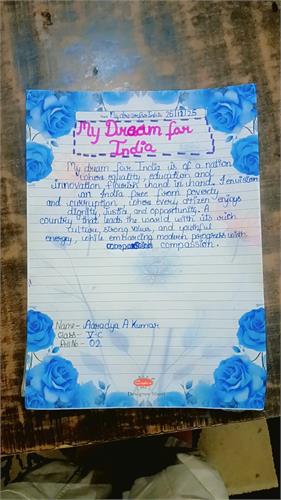 My dream for India 26/11/25
My Dream for
India
My dream for India is of a nation
where equality, education and
innovation flourish hand in hand. I envision
an India free from poverty
and curruption, where every citizen enjoys
dignity, Justice, and opportunity. A
country that leads the world with its rich
culture, strong values, and youthful
energy, while embracing modern progress with
compassion.
Name - Aaradya A Kumar
Class - V-C
Roll No - 02
Designer Sheet